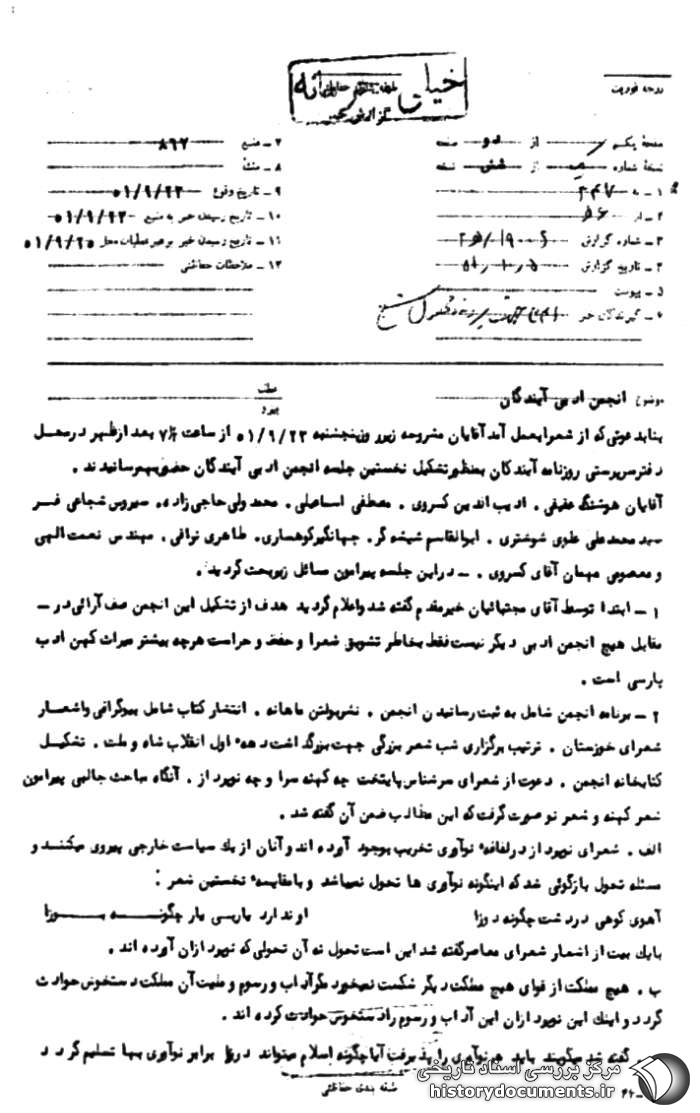 خیلی محرمانه
طبقه بندی حفاظتی
گزارش خبر
درجه فوریت
صفحه یکم از دو صفحه
نسخه شماره از شش نسخه
۱ – به ۳۴۷
۲ – از ۶ﻫ
۳ – شماره گزارش
۴ – تاریخ گزارش
۵ – پیوست
۶ – گیرندگان خبر
۷ – منبع ۸۶۷
۸ – منشأ
۹ – تاریخ وقوع ۵۱/۹/۲۳
۱۰ – تاریخ رسیدن خبر به منبع ۵۱/۹/۲۳
۱۱ – تاریخ رسیدن خبر برهبر عملیات محل ۵۱/۹/۲۵
۱۲ – ملاحظات حفاظتی
موضوع انجمن ادبی آیندگان
عطف
پیرو
بنابدعوتی که از شعرابعمل آمد آقایان مشروحه زیر روز پنجشنبه ۵۱/۹/۲۳ از ساعت ۷/۵ بعد ازظهر در محل
دفتر سرپرستی روزنامه آیندگان بمنظور تشکیل نخستین جلسه انجمن ادبی آیندگان حضور بهم رسانیدند .
آقایان هوشنگ عفیفی . ادیب الدین کسروی . مصطفی اسماعیلی . محمد ولی حاجی زاده . سیروس شجاعی فر
سید محمد علی علوی شوشتری . ابوالقاسم شیشه گر . جهانگیر کوهساری . طاهری نراقی . مهندس نعمت الهی
و معصومی مهمان آقای کسروی . – در این جلسه پیرامون مسائل زیر بحث گردید .
۱ – ابتدا توسط آقای مجتبائیان خیر مقدم گفته شد و اعلام گردید هدف از تشکیل این انجمن صف آرائی در –
مقابل هیچ انجمن ادبی دیگر نیست فقط بخاطر تشویق شعرا و حفظ و حراست هرچه بیشتر میراث کهن ادب
پارسی است .
۲ – برنامه انجمن شامل به ثبت رسانیدن انجمن . نشر بولتن ماهانه . انتشار کتاب شامل بیوگرافی و اشعار
شعرای خوزستان . ترتیب برگزاری شب شعر بزرگی جهت بزرگداشت دهه اول انقلاب شاه و ملت . تشکیل
کتابخانه انجمن . دعوت از شعرای سرشناس پایتخت چه کهنه سرا و چه نوپرداز . آنگاه مباحث جالبی پیرامون
شعر کهنه و شعر نو صورت گرفت که این مطالب ضمن آن گفته شد .
الف . شعرای نوپرداز در لفافه نوآوری تخریب بوجود آورده اند و آنان از یک سیاست خارجی پیروی میکنند و
مسئله تحول بازگوئی شد که اینگونه نوآوری ها تحول نمیباشد و با مقایسه نخستین شعر :
آهوی کوهی در دشت چگونه دوزا او ندارد یار بی یار چگونه بوزا
با یک بیت از اشعار شعرای معاصر گفته شد این است تحول نه آن تحولی که نوپردازان آورده اند .
ب . هیچ مملکت از قوای هیچ مملکت دیگر شکست نمیخورد مگر آداب و رسوم و ملیت آن مملکت دستخوش حوادث
گردد و اینک این نوپردازان این آداب و رسوم را دستخوش حوادث کرده اند .
گفته شد میگویند باید هر نوآوری را پذیرفت آیا چگونه اسلام میتواند در برابر نوآوری بها تسلیم گردد
طبقه بندی حفاظتی
مرکز بررسی اسناد تاریخی
historydocuments.ir